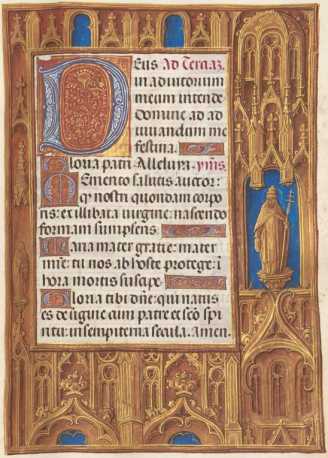 Deus Ad Terciaz
in adiutorium
meum intende
domine ad ad
iuuandum me
festina.
Gloria patri Alleluya. ymnis
Memento salutis auctor:
q nostri quondam corpo
ris: ex illibata uirgine nascendo
formam sumpseris.
Maria mater gratie: mater
mie: tu nos ab hoste protege: i
hora mortis suscipe.
Gloria tibi dñe: qui natus
es de ũgine cum patre et scõ spi
ritu: in sempiterna secula. Amen.